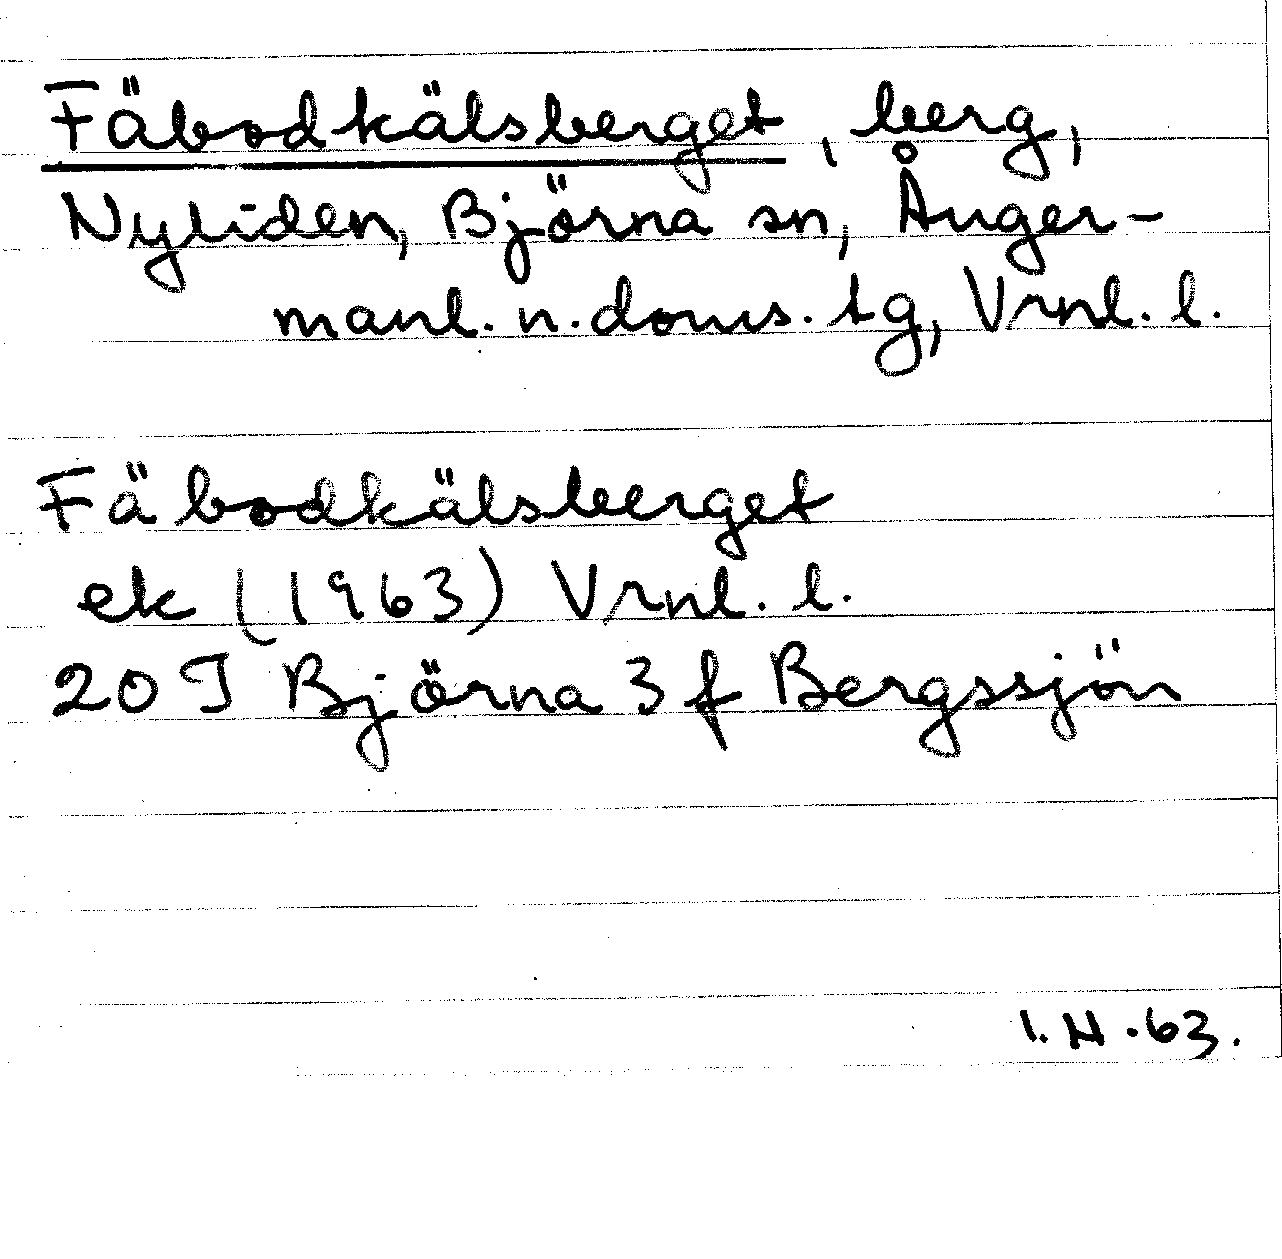 Fäbodkälsberget, berg,
Nyliden, Björna sn, Ånger-
manl. n. doms. tg, Vrnl. l.
Fäbodkälsberget
ek (1963) Vrnl. l.
20 J Björna 3 f Bergssjön
I. N. 63.